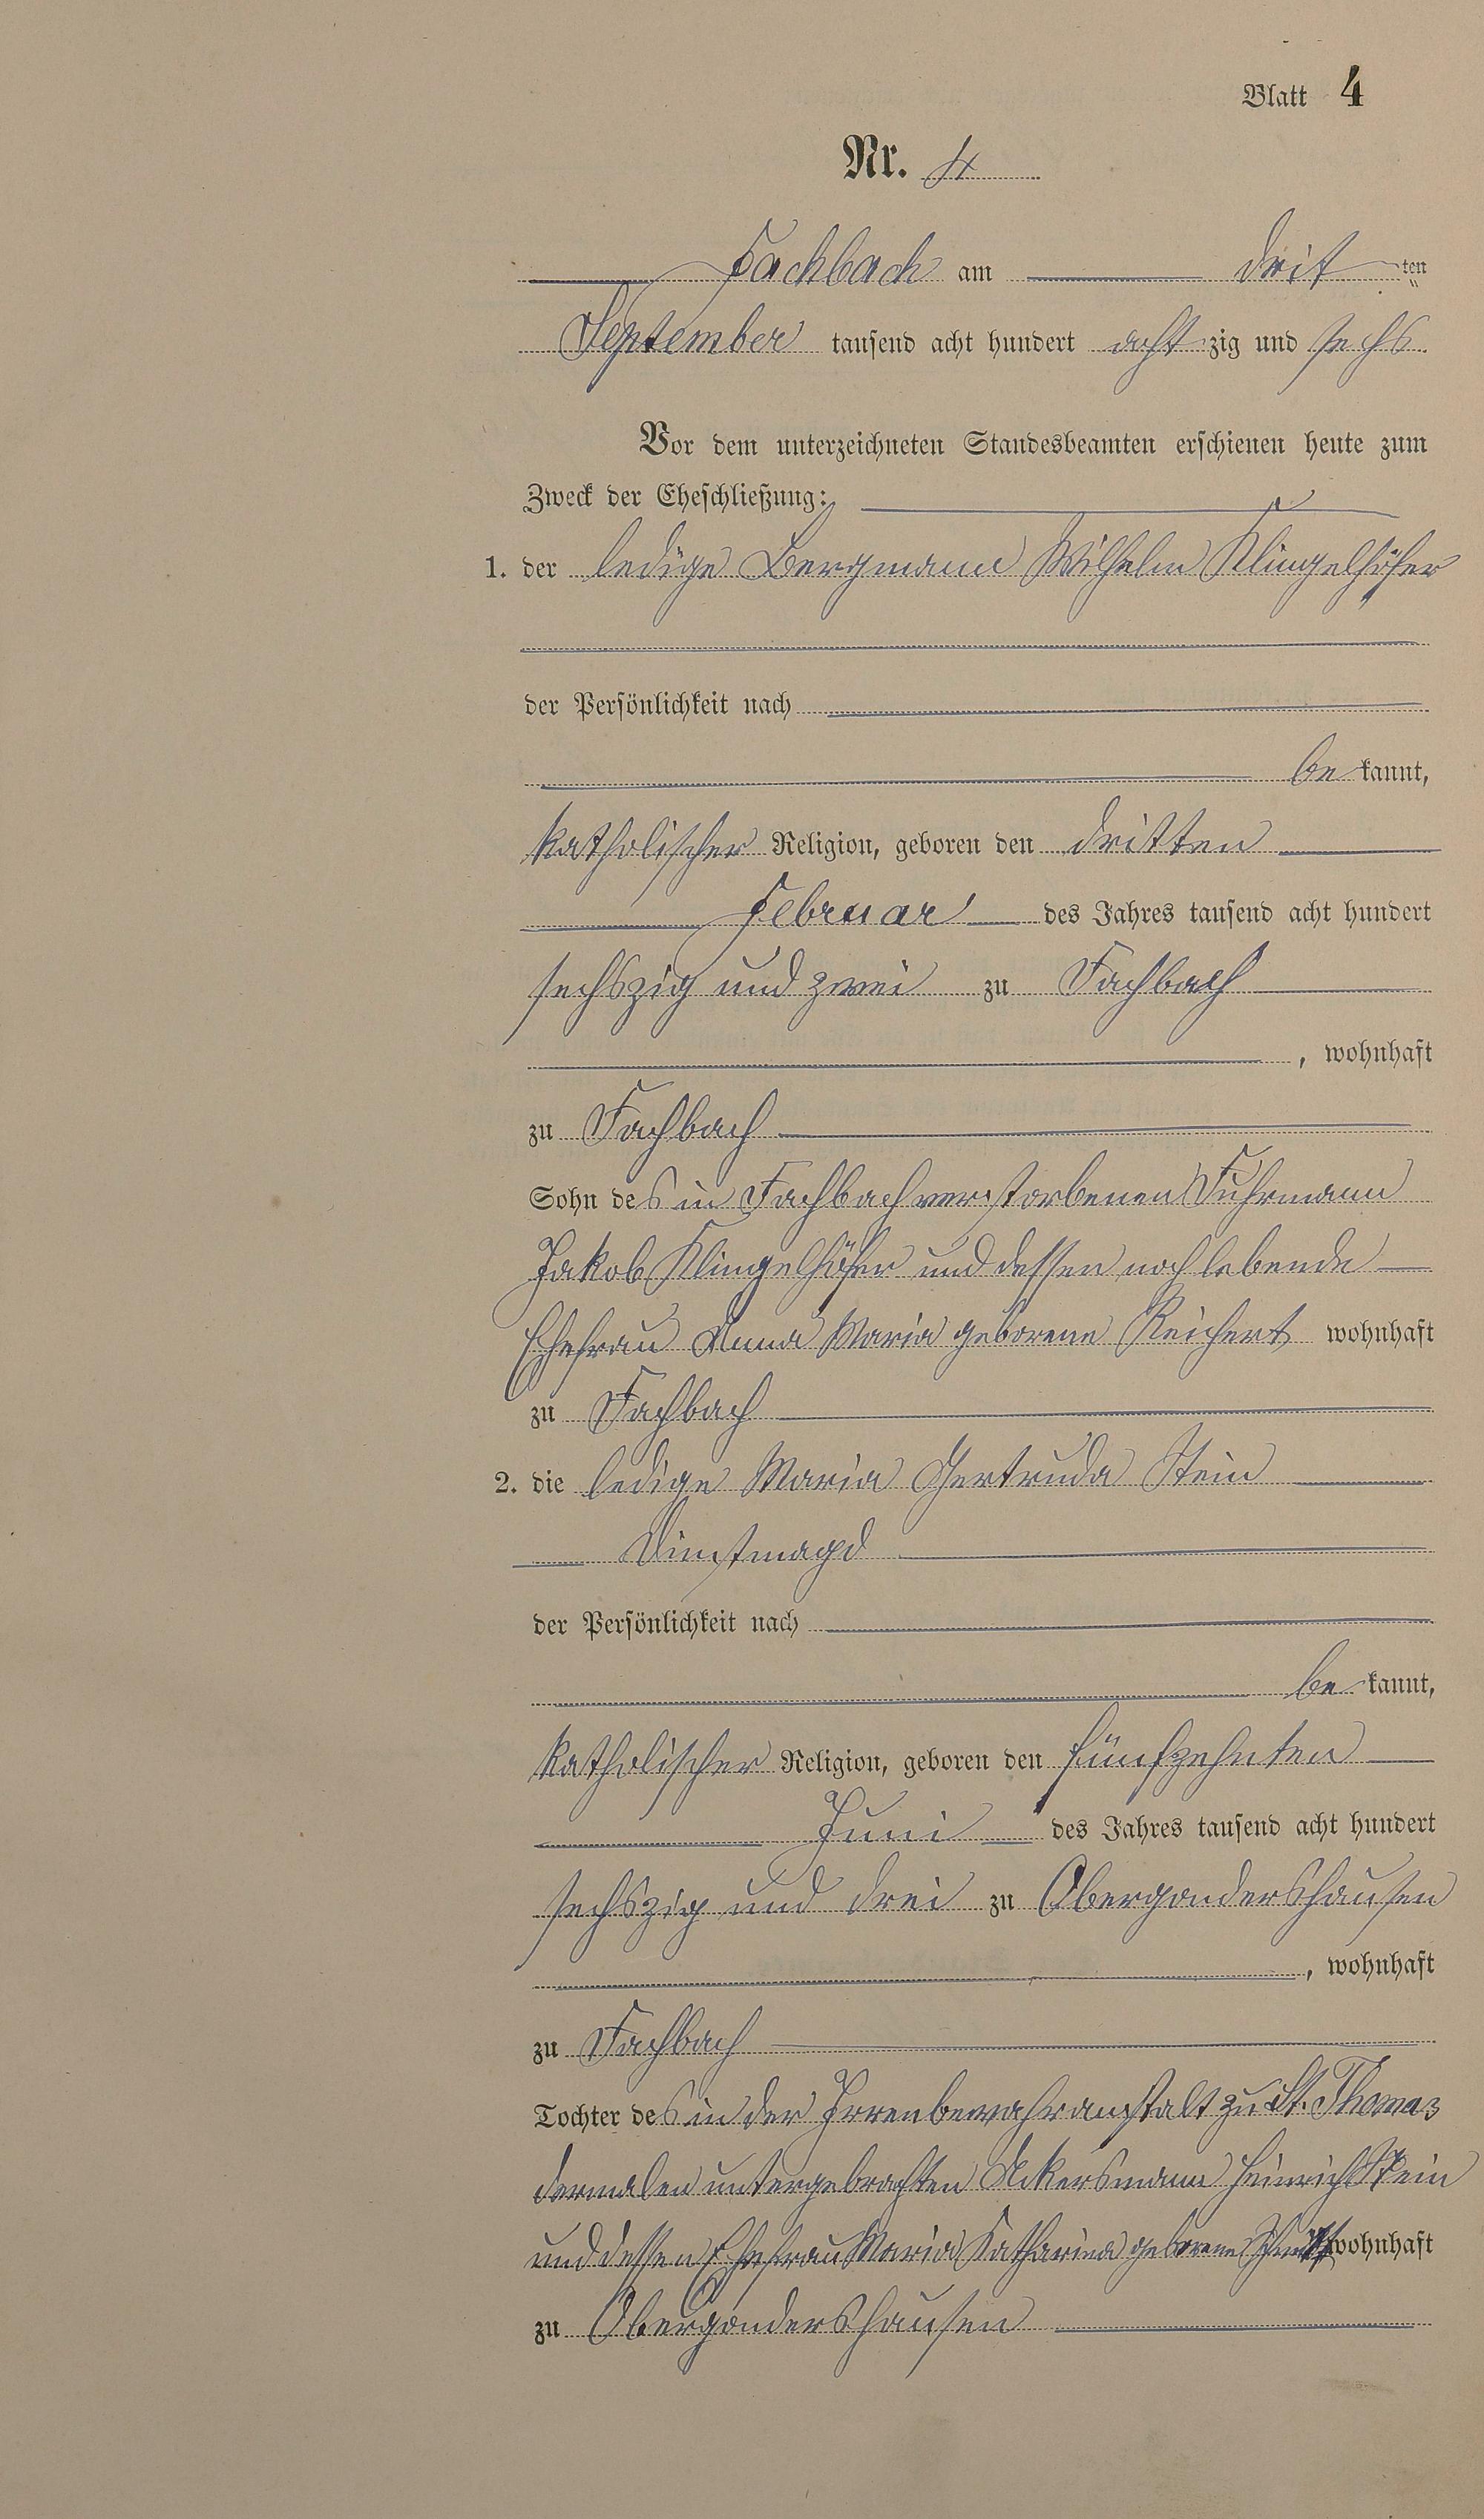 Blatt 4
Nr. 4
Fachbach am dritten
September tausend acht hundert achtzig und sechs
Vor dem unterzeichneten Standesbeamten erschienen heute zum
Zweck der Eheschließung:
1. der ledige Bergmann Wilhelm Klingelhöfer
der Persönlichkeit nach
bekannt,
katholischer Religion, geboren den dritten
Februar des Jahres tausend acht hundert
sechszig und zwei zu Fachbach
, wohnhaft
zu Fachbach
Sohn des in Fachbach verstorbenen Fuhrmann
Jakob Klingelhöfer und dessen noch lebende
Ehefrau Anna Maria geborene Reichert wohnhaft
zu Fachbach
2. die ledige Maria Gertruda Stein
Dinstmagd
der Persönlichkeit nach
bekannt,
katholischer Religion, geboren den fünfzehnten
Juni des Jahres tausend acht hundert
sechszig und drei zu Obergondershausen
, wohnhaft
zu Fachbach
Tochter des in der Irrenbewahranstalt zu St. Thomas
dermalen untergebrachten Ackersmann Heinrich Stein
und dessen Ehefrau Maria Katharina geborene wohnhaft
zu Obergondershausen